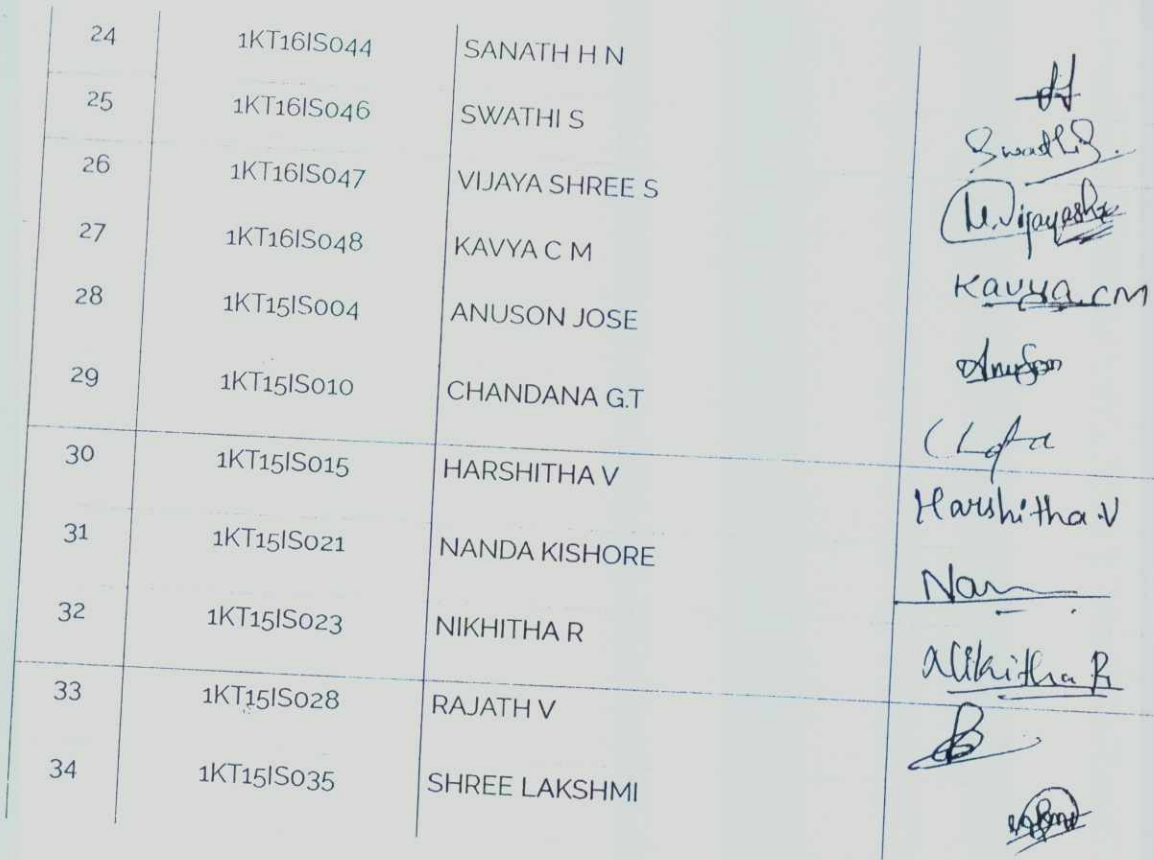 24 1KT16IS044 SANATH H N
25 1KT16IS046 SWATHI S Swathi S.
26 1KT16IS047 VIJAYA SHREE S
27 1KT16IS048 KAVYA C M Kavya. CM
28 1KT15IS004 ANUSON JOSE Anuson
29 1KT15IS010 CHANDANA G.T
30 1KT15IS015 HARSHITHA V Harshitha.V
31 1KT15IS021 NANDA KISHORE Nan
32 1KT15IS023 NIKHITHA R Nikhitha R
33 1KT15IS028 RAJATH V
34 1KT15IS035 SHREE LAKSHMI